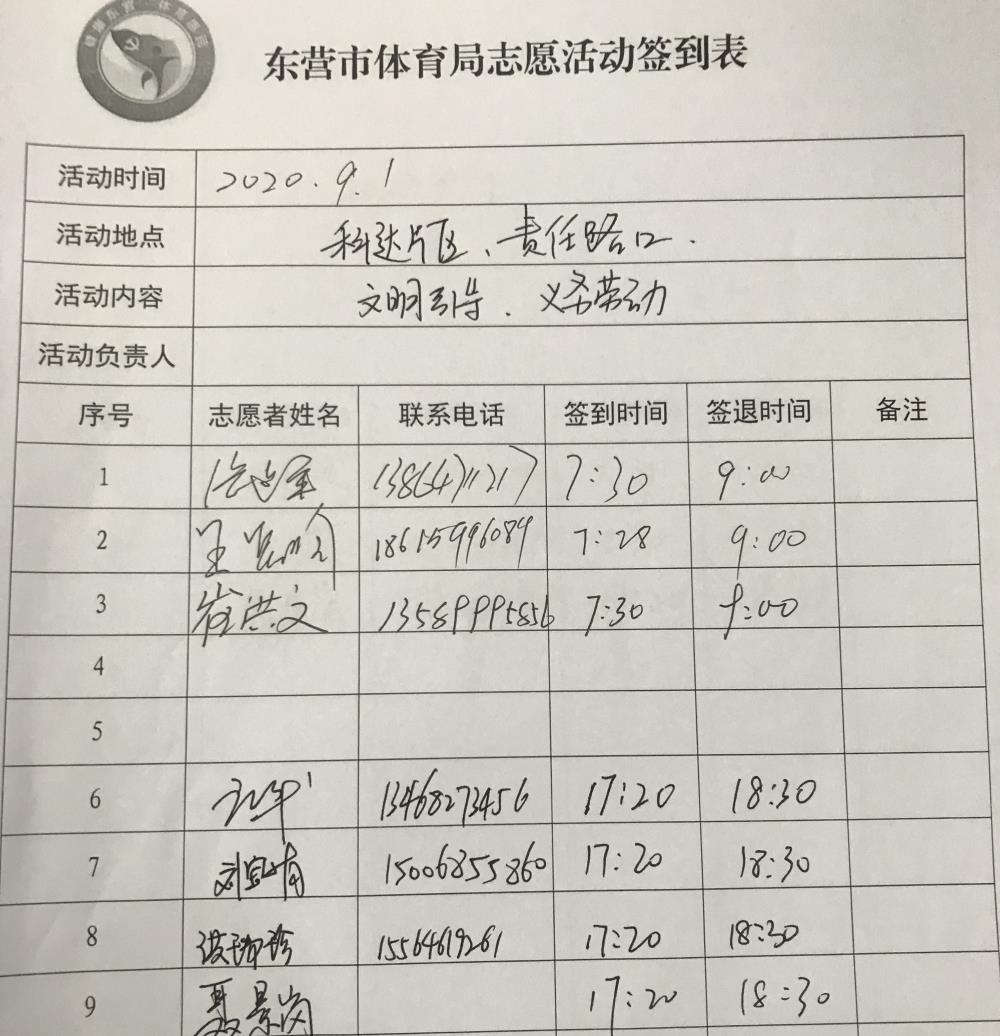 东营市体育局志愿活动签到表
活动时间 2020.9.1
活动地点 科达片区、责任路口.
活动内容 文明引导、义务劳动
活动负责人
序号 志愿者姓名 联系电话 签到时间 签退时间 备注
1 7:30 9:00
2 18615996089 7:28 9:00
3 崔洪文 13589995856 7:30 9:00
4
5
6 13468273456 17:20 18:30
7 15006855860 17:20 18:30
8 15564619261 17:20 18:30
9 聂景岗 17:20 18:30